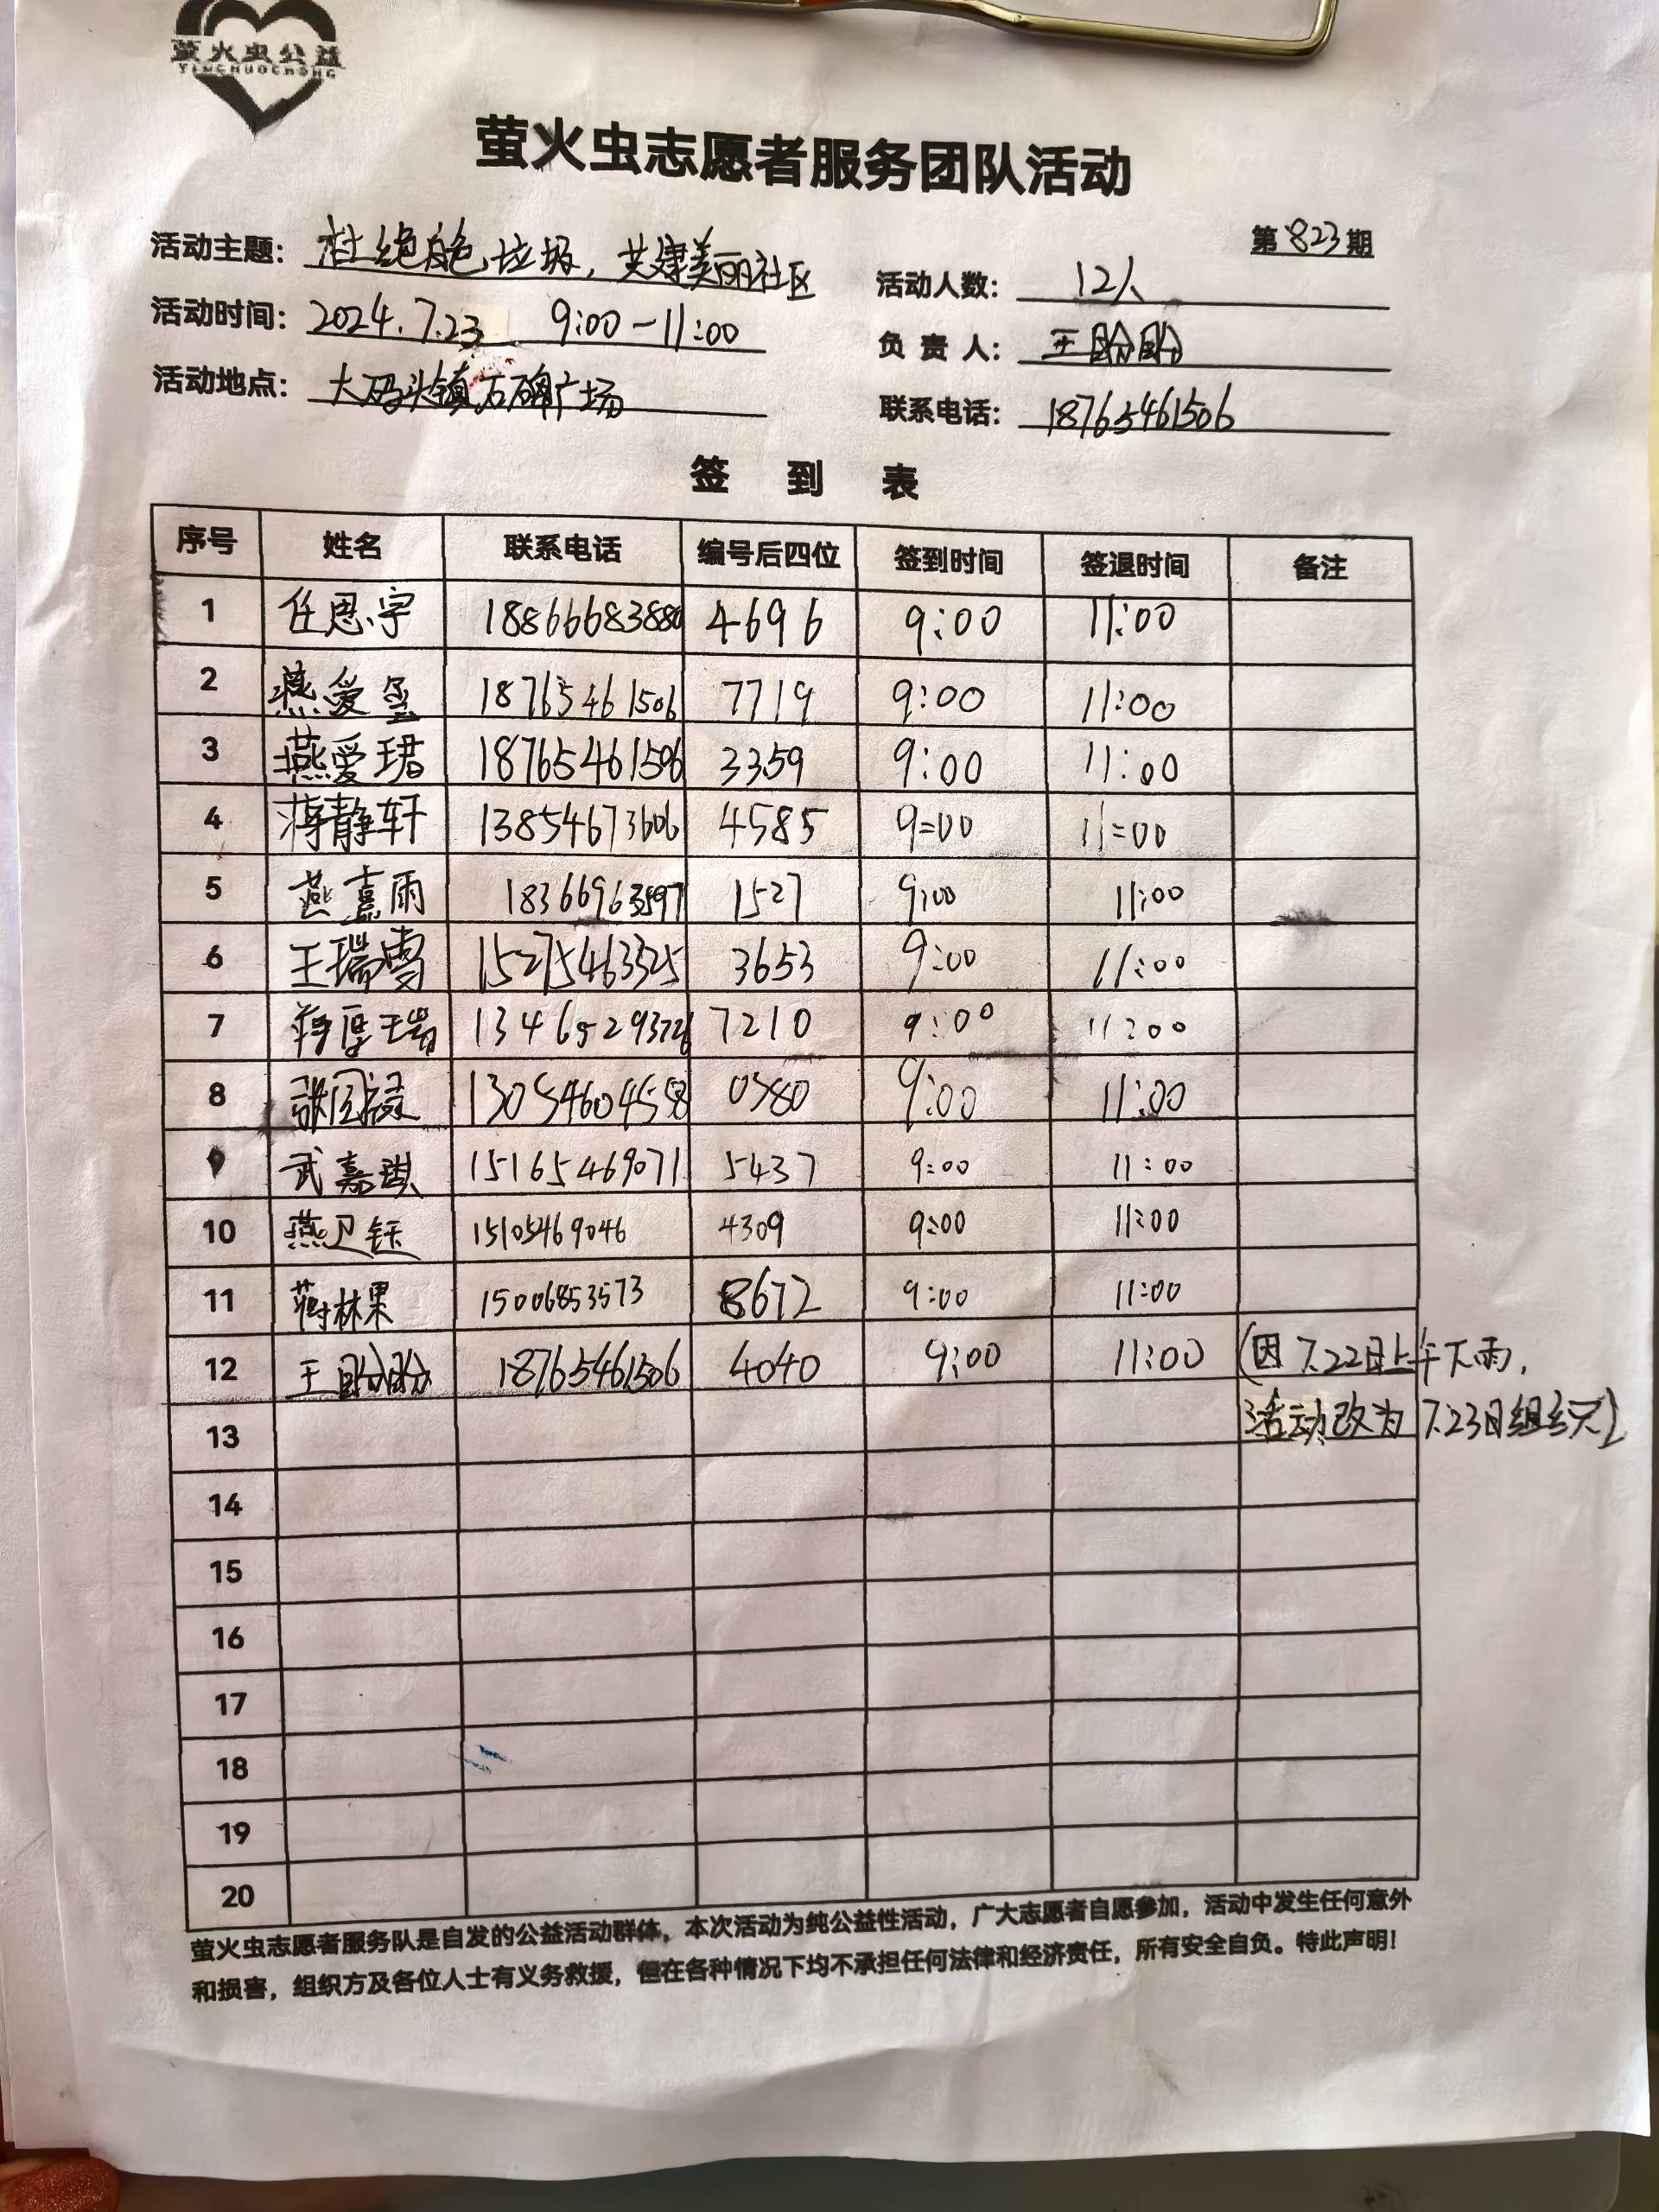 萤火虫公益
YINGHUOCHONG
萤火虫志愿者服务团队活动
第823期
活动主题: 杜绝白色垃圾，共建美丽社区
活动人数: 12人
活动时间: 2024.7.23 9:00-11:00
负 责 人: 王盼盼
活动地点: 大码头镇石碑广场
联系电话: 18765461506
签 到 表
序号 姓名 联系电话 编号后四位 签到时间 签退时间 备注
1 任思宇 18866683880 4696 9:00 11:00
2 燕爱玺 18765461506 7719 9:00 11:00
3 燕爱珺 18765461506 3359 9:00 11:00
4 蒋静轩 13854673606 4585 9=00 11=00
5 燕熹雨 18366963597 1527 9:00 11:00
6 王瑞雪 15275463525 3653 9:00 11:00
7 蒋厚瑞 13465293726 7210 9:00 11:00
8 张国禄 13054604558 0580 9:00 11:00
9 武嘉琪 15165469071 5437 9:00 11:00
10 燕卫钰 15105469046 4309 9:00 11:00
11 蒋林果 15006853573 8672 9:00 11:00
12 王盼盼 18765461506 4040 9:00 11:00 (因7.22日上午下雨,
13 活动改为7.23日组织)
14
15
16
17
18
19
20
萤火虫志愿者服务队是自发的公益活动群体，本次活动为纯公益性活动，广大志愿者自愿参加，活动中发生任何意外
和损害，组织方及各位人士有义务救援，但在各种情况下均不承担任何法律和经济责任，所有安全自负。特此声明！